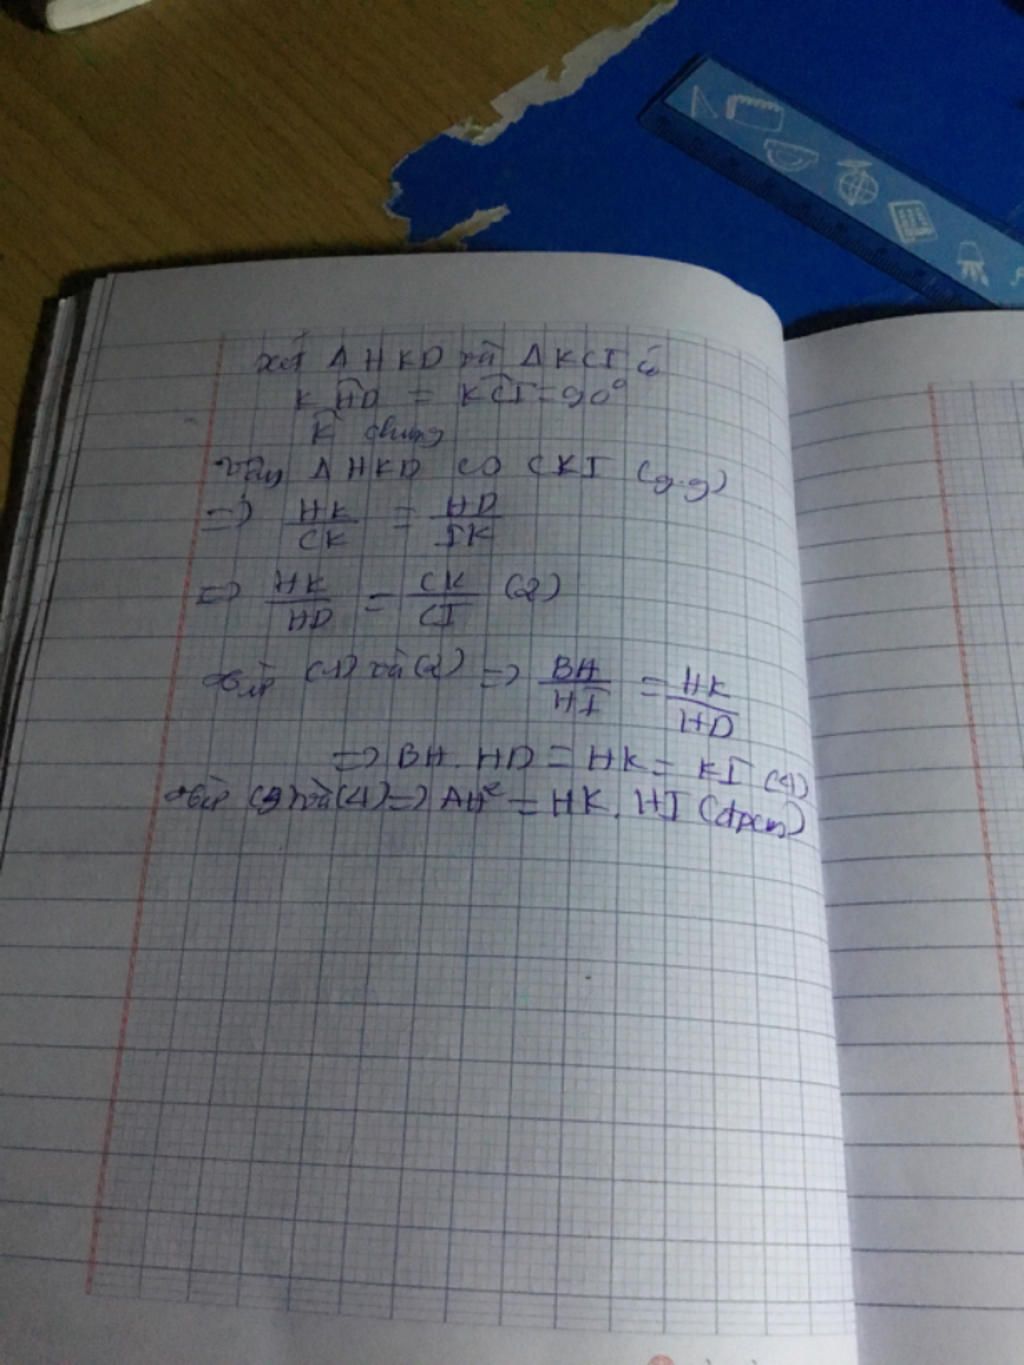 xét Δ HKD và Δ KCI có
KHD = KCI = 90°
K chung
vậy Δ HKD ᔕ CKI (g.g)
=> HK/CK = HD/IK
=> HK/HD = CK/CI (2)
từ (1) và (2) => BH/HI = HK/HD
=> BH . HD = HK = KI (4)
từ (3) và (4) => AH² = HK . HI (đpcm)